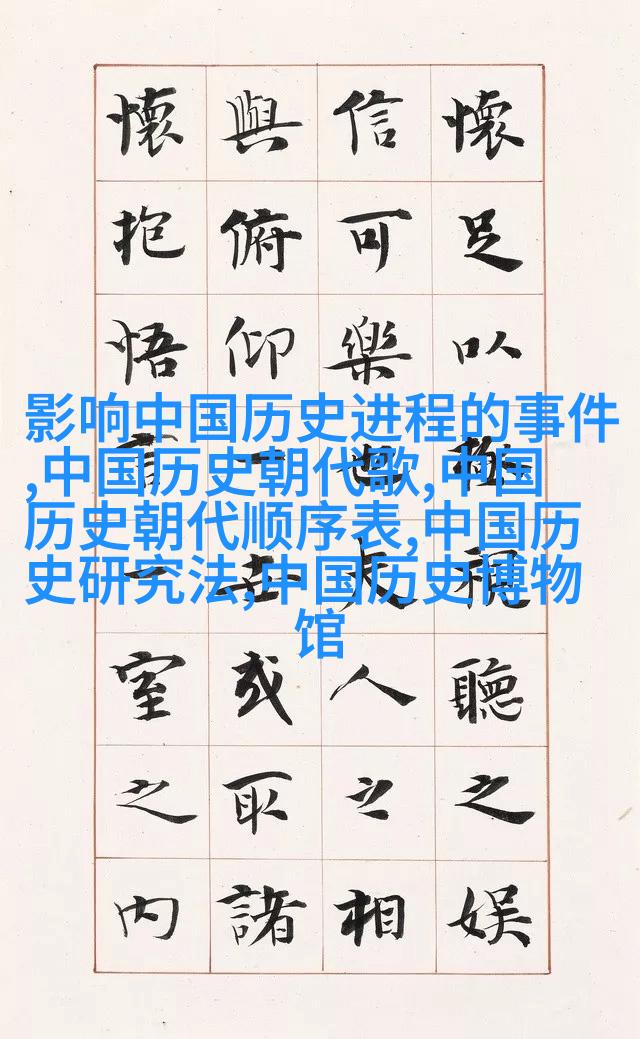 懷足以極視聽之娛
信可樂也夫人之相
與俯仰一世或取諸
懷抱悟言一室之內
影响中国历史进程的事件
,中国历史朝代歌,中国
历史朝代顺序表,中国历
史研究法,中国历史博物
馆